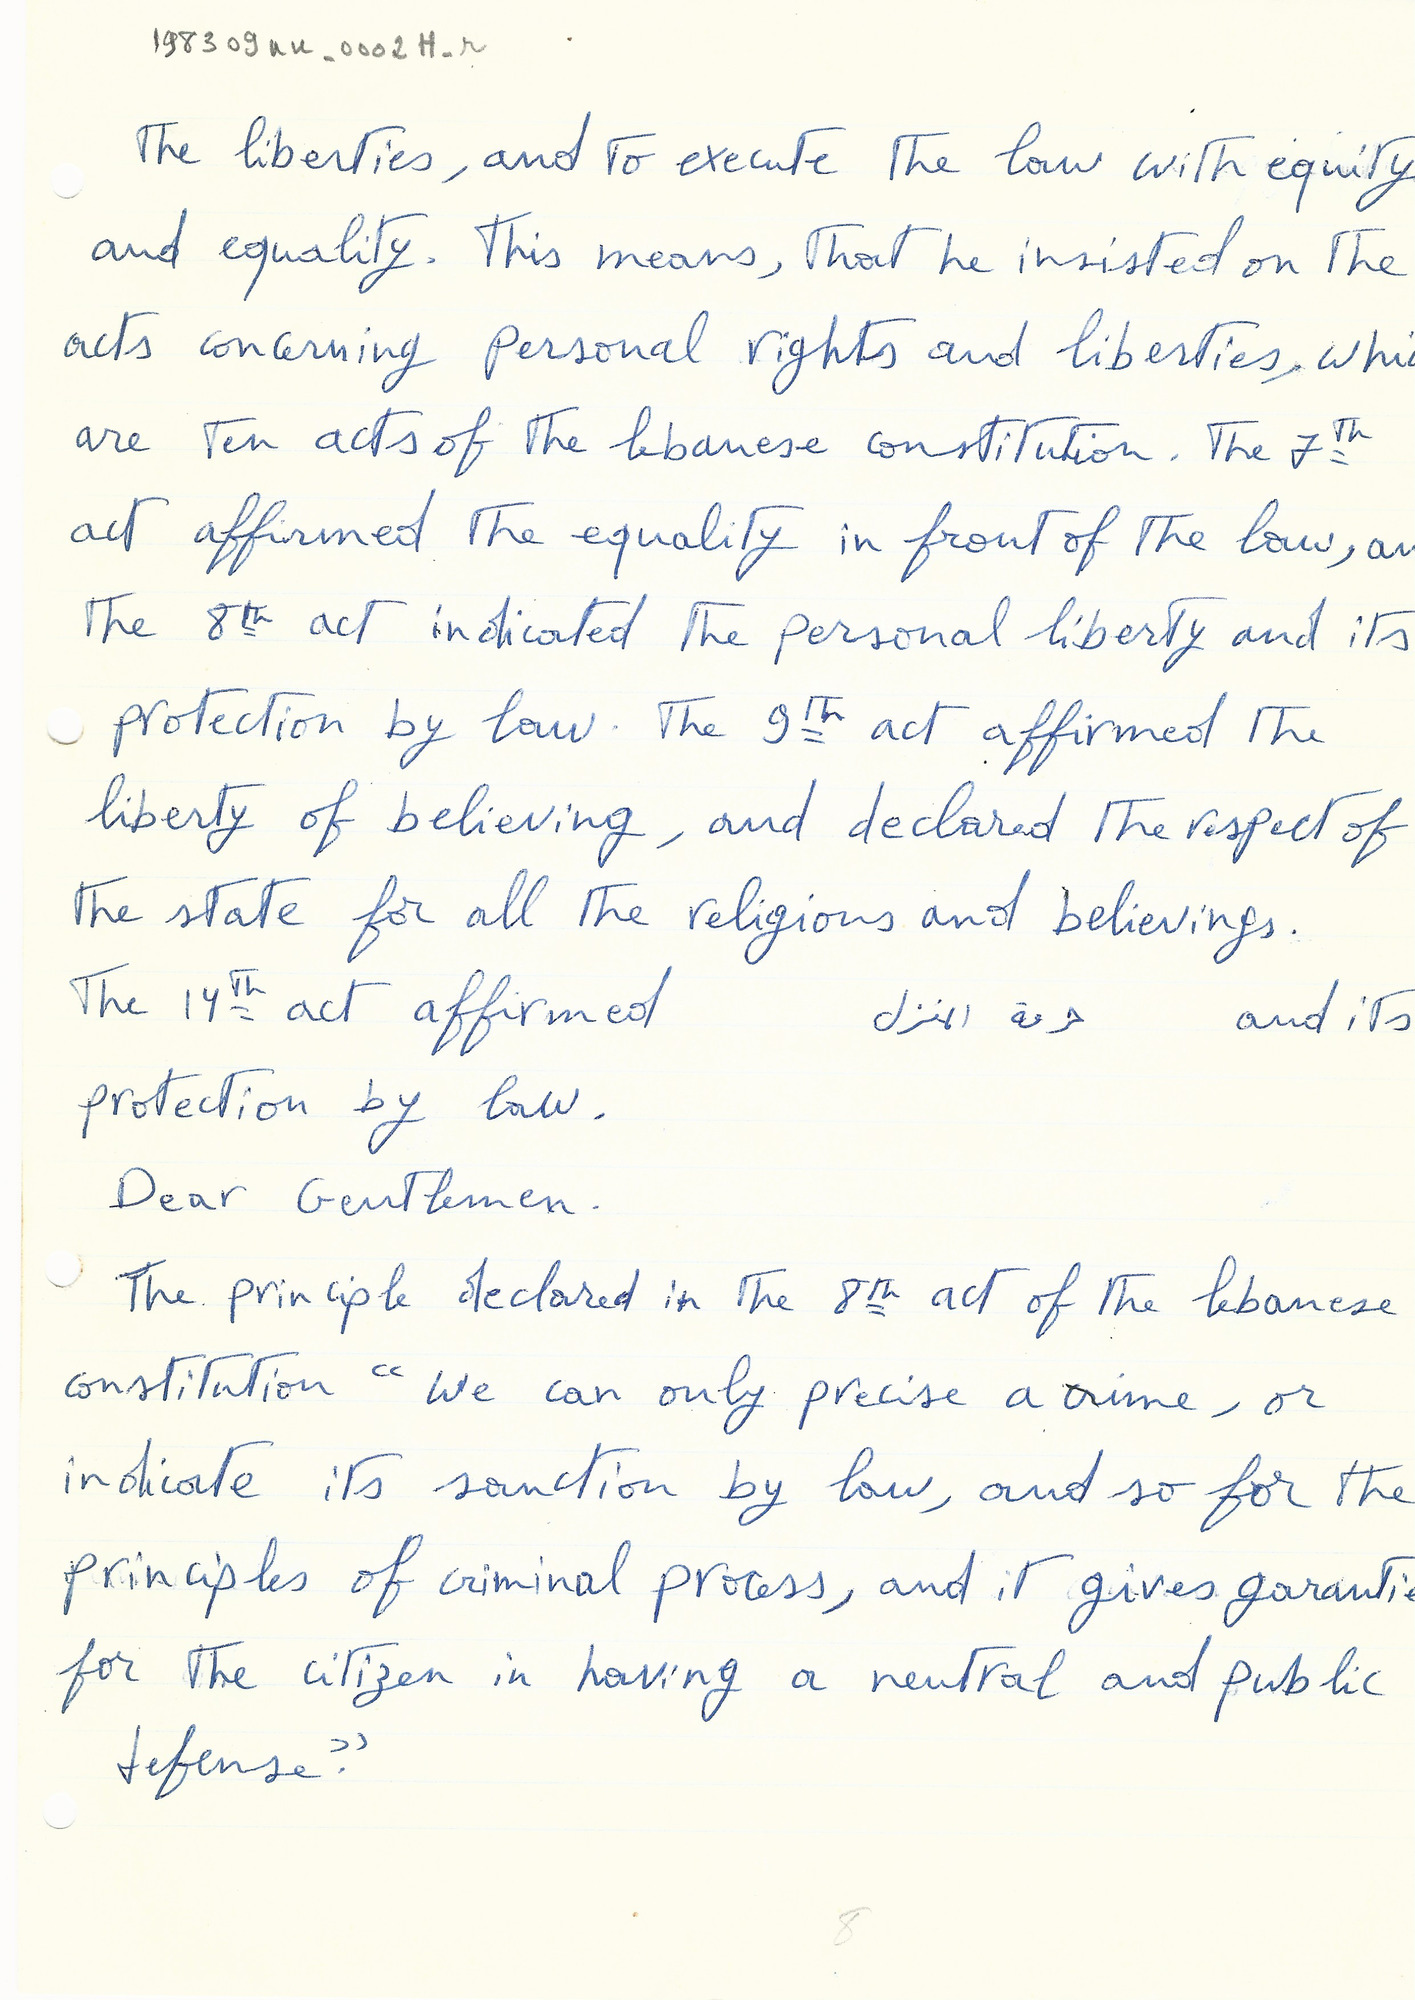 198309nn_0002H_r
The liberties, and to execute the law with equity
and equality. This means, that he insisted on the
acts concerning personal rights and liberties, whic
are ten acts of the lebanese constitution. The 7th
act affirmed the equality in front of the law, an
the 8th act indicated the personal liberty and its
protection by law. The 9th act affirmed the
liberty of believing, and declared the respect of
the state for all the religious and believings.
The 14th act affirmed حرمة المنزل and its
protection by law.
Dear Gentlemen.
The principle declared in the 8th act of the lebanese
constitution "We can only precise a crime, or
indicate its sanction by law, and so for the
principles of criminal process, and it gives garantie
for the citizen in having a neutral and public
defense".
8